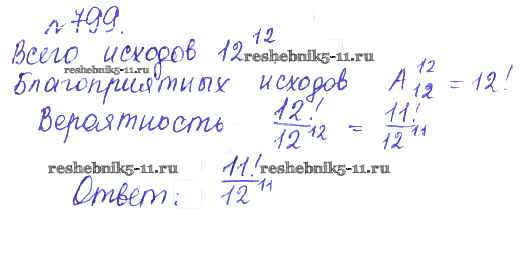 № 799.
Всего исходов 12^12
reshebnik5-11.ru
reshebnik5-11.ru
Благоприятных исходов A_12^12 = 12!
Вероятность 12!/12^12 = 11!/12^11
reshebnik5-11.ru reshebnik5-11.ru
Ответ: 11!/12^11